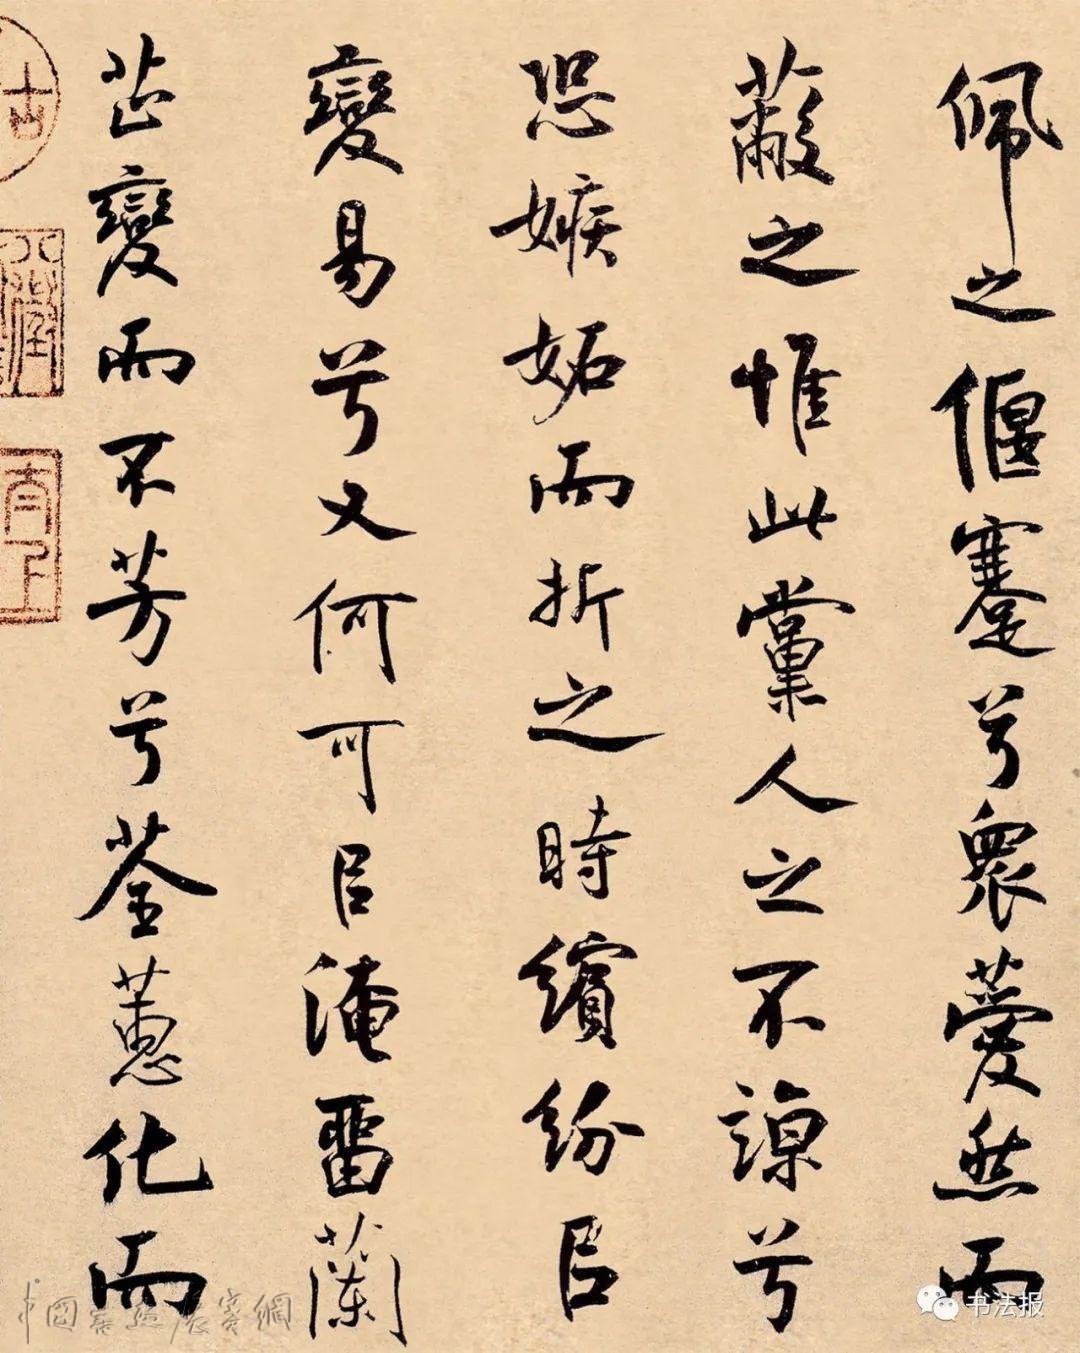 佩之偃蹇兮衆薆然而
蔽之惟此黨人之不諒兮
恐嫉妬而折之時繽紛㠯
變易兮又何可㠯淹畱蘭
芷變而不芳兮荃蕙化而
中國書畫展賽網
书法报